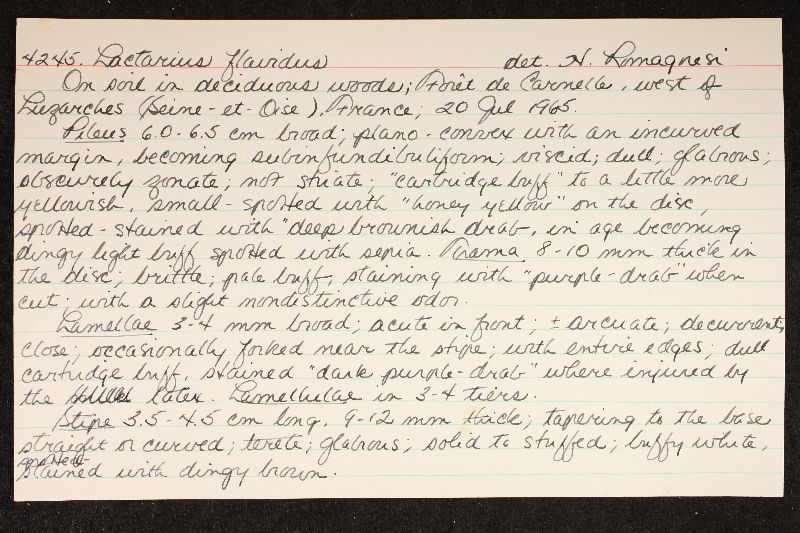 4245. Lactarius flavidus det. H. Romagnesi
On soil in deciduous woods; Forêt de Carnelle, west of
Luzarches (Seine-et-Oise), France; 20 Jul 1965.
Pileus 6.0-6.5 cm broad; plano-convex with an incurved
margin, becoming subinfundibuliform; viscid; dull; glabrous;
obscurely zonate; not striate; "cartridge buff" to a little more
yellowish, small-spotted with "honey yellow" on the disc,
spotted-stained with "deep brownish drab, in age becoming
dingy light buff spotted with sepia. Trama 8-10 mm thick in
the disc, brittle; pale buff, staining with "purple-drab" when
cut; with a slight nondistinctive odor.
Lamellae 3-4 mm broad; acute in front; ± arcuate; decurrent;
close; occasionally forked near the stipe; with entire edges; dull
cartridge buff, stained "dark purple-drab" where injured by
the latex. Lamellulae in 3-4 tiers.
Stipe 3.5-4.5 cm long, 9-12 mm thick; tapering to the base
straight or curved; terete; glabrous; solid to stuffed; buffy white,
spotted-stained with dingy brown.